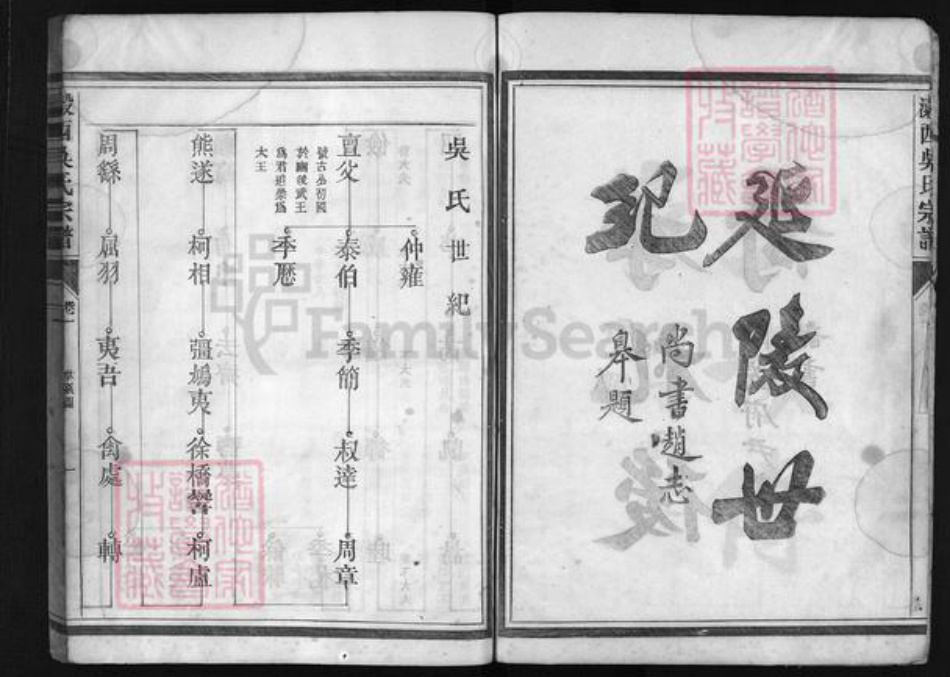 延陵世
紀
尚書趙志
皋題
吳氏世紀
仲雍
亶父 泰伯 季簡 叔達 周章
號古公初國
於豳後武王
為君追崇為
大王
季歷
熊遂 柯相 彊鳩夷 徐橋 柯盧
周繇 屈羽 夷吾 禽處 轉
吳氏宗譜
卷一
一
西吳氏宗譜
FamilySearch